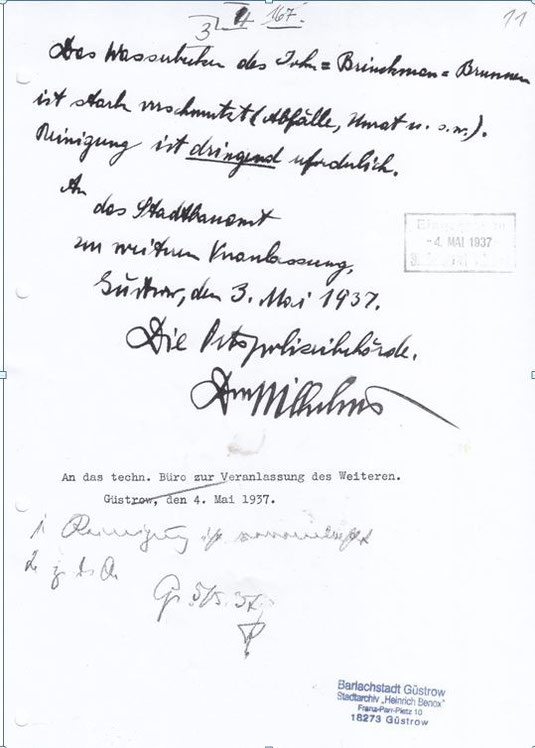 167.
11
Das Wasserbecken des John=Brinckman=Brunnen
ist stark verschmutzt (Abfälle, Unrat u. s. w.).
Reinigung ist dringend erforderlich.
An
das Stadtbauamt
zur weiteren Veranlassung.
Güstrow, den 3. Mai 1937.
Die Ortspolizeibehörde.
-4. MAI 1937
An das techn. Büro zur Veranlassung des Weiteren.
Güstrow, den 4. Mai 1937.
1. Reinigung ist
2. z. d. A.
5/5. 37.
Barlachstadt Güstrow
Stadtarchiv „Heinrich Benox"
Franz-Parr-Platz 10
18273 Güstrow